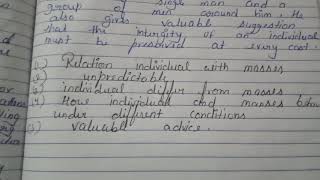 group of single man and a
group of men around him. He
also gives valuable suggestion
that the integrity of an individual
must be preserved at every cost.
(1) Relation individual with masses
(2) unpredictable
(3) individual differ from masses
(4) How individual and masses behave
under different conditions
(5) valuable advice.